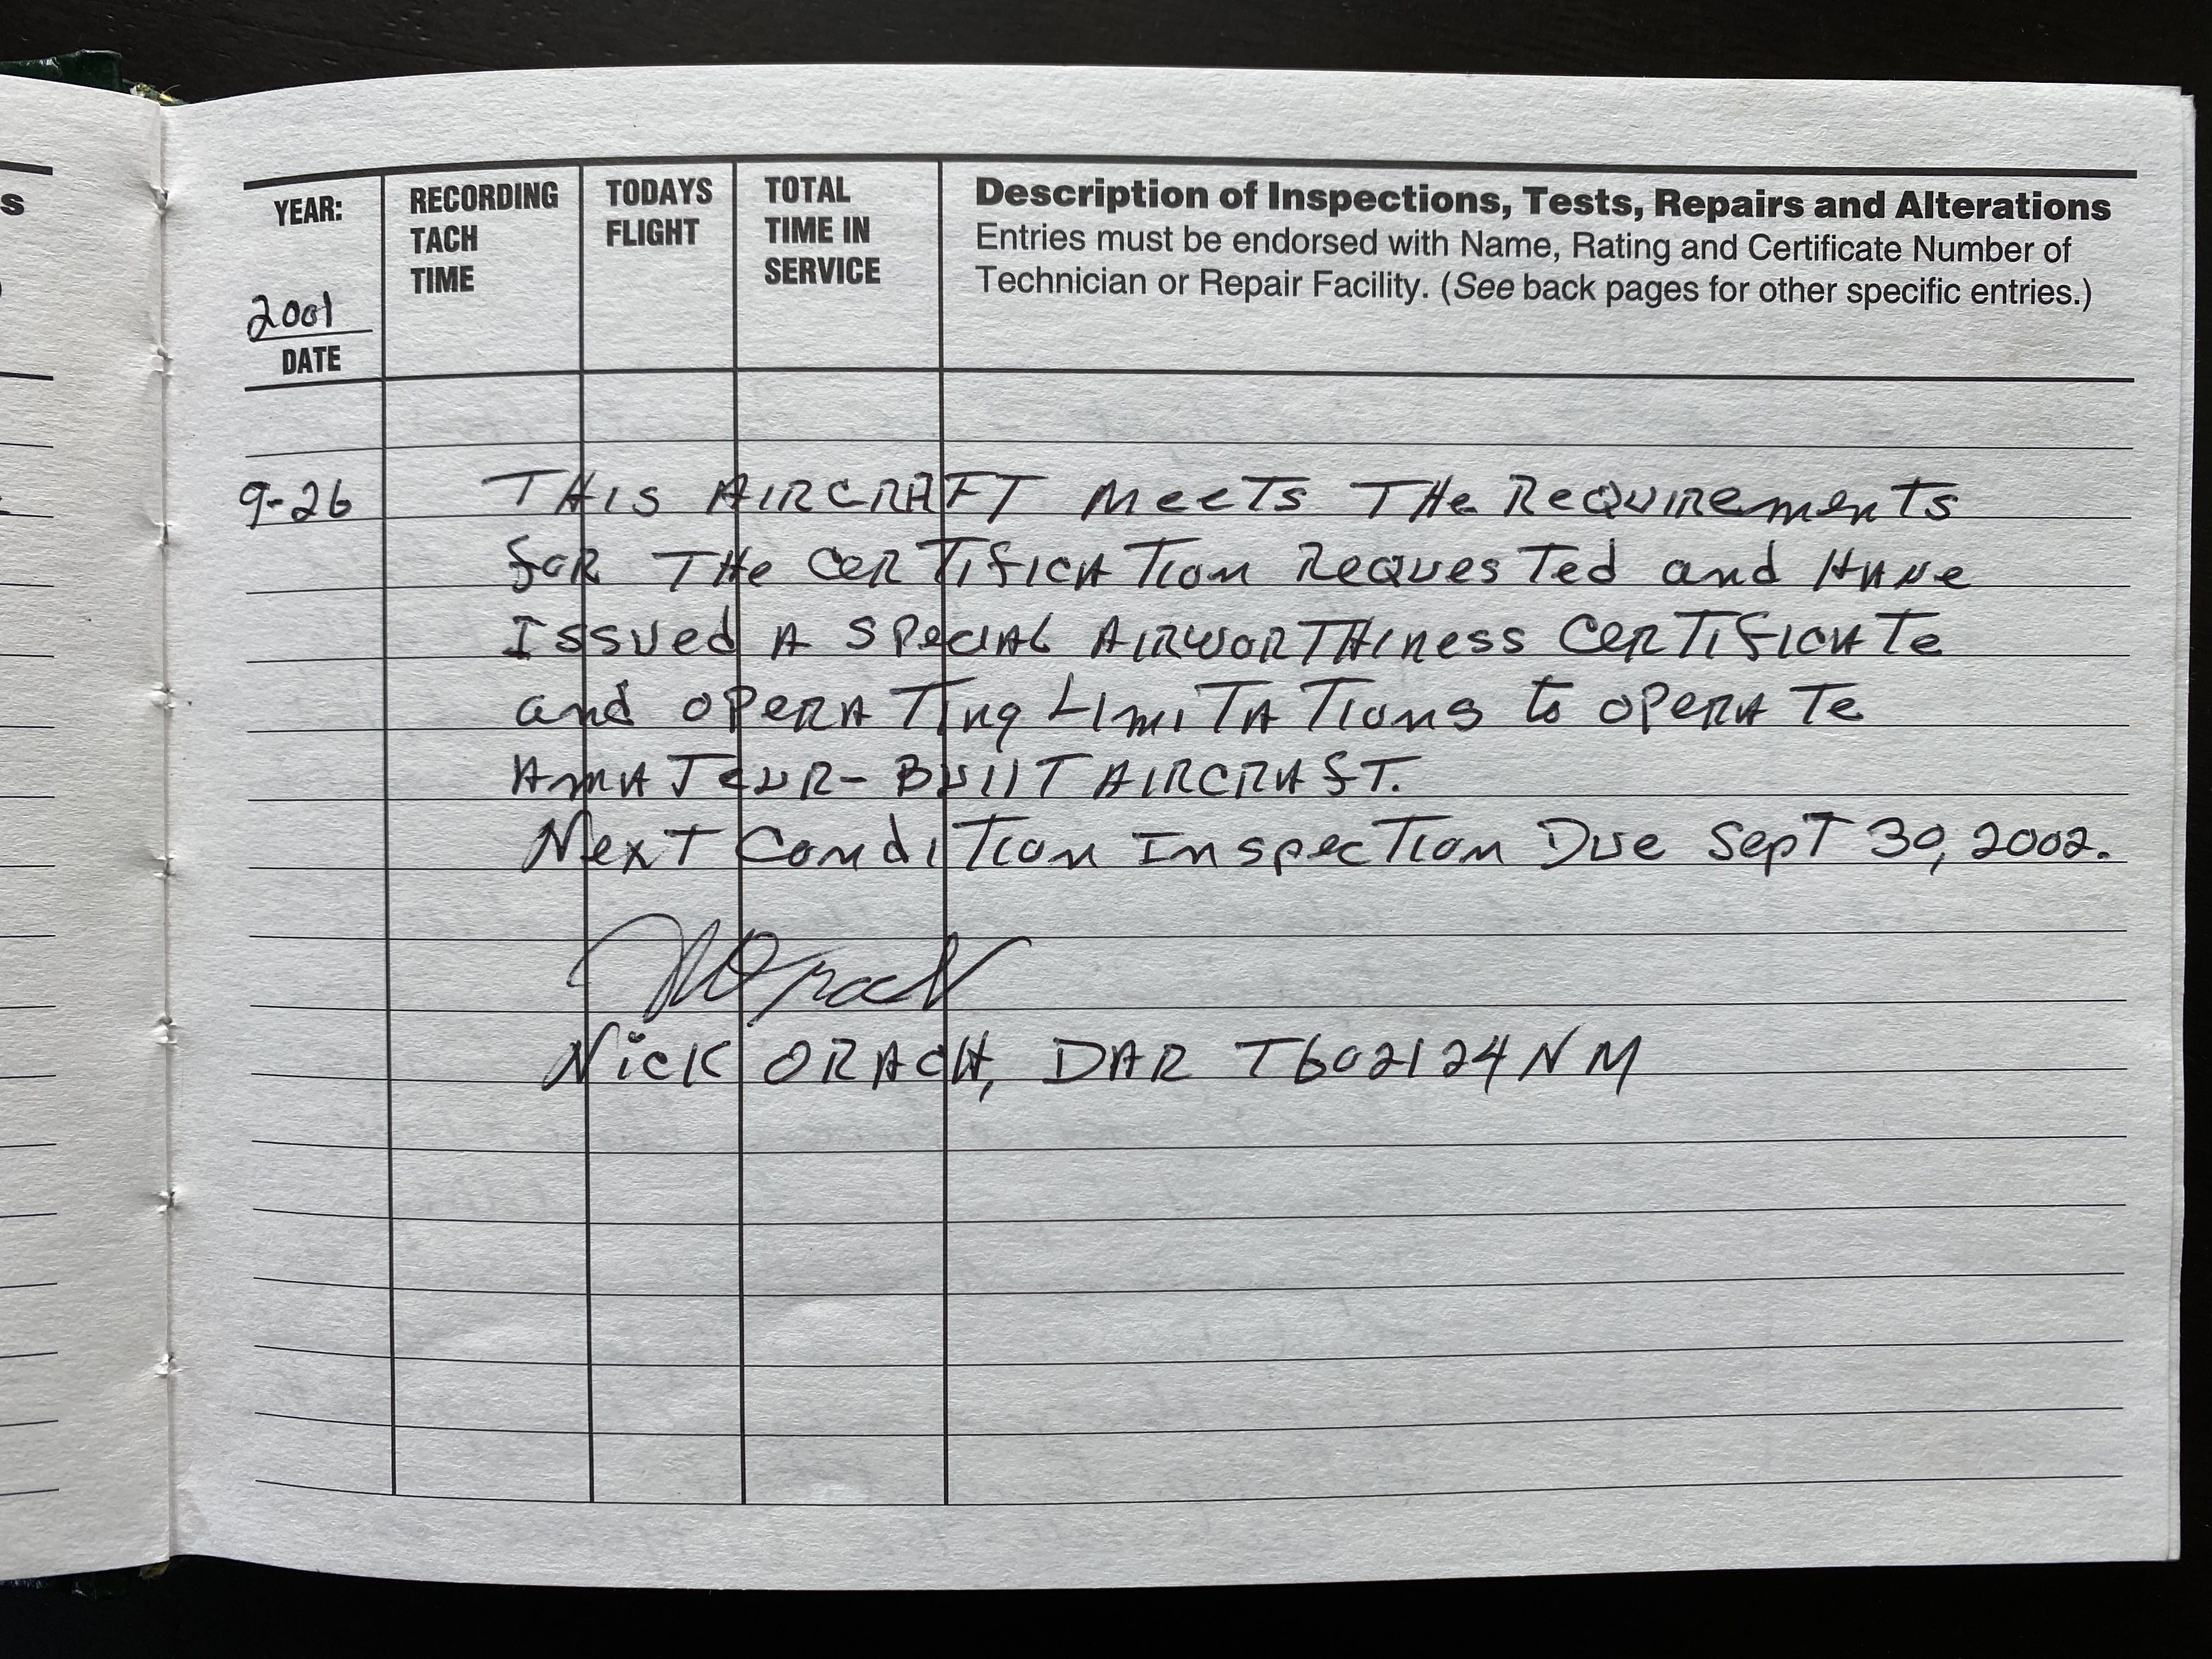 s
YEAR:
2001
DATE
RECORDING
TACH
TIME
TODAYS
FLIGHT
TOTAL
TIME IN
SERVICE
Description of Inspections, Tests, Repairs and Alterations
Entries must be endorsed with Name, Rating and Certificate Number of
Technician or Repair Facility. (See back pages for other specific entries.)
9-26 THIS AIRCRAFT MeeTs THe ReQUIRemenTs
foR THe CeRTIfICATIon RequesTed and HAve
Issued A SPecIAL AIRWORTHIness CeRTIfICATe
and OPeRATIng LImITATIons to OPeRATe
AmATeUR-BUIlT AIRCRAfT.
NexT CondITIon InspecTIon Due SepT 30, 2002.
NOrach
NicK ORACH, DAR T602124NM